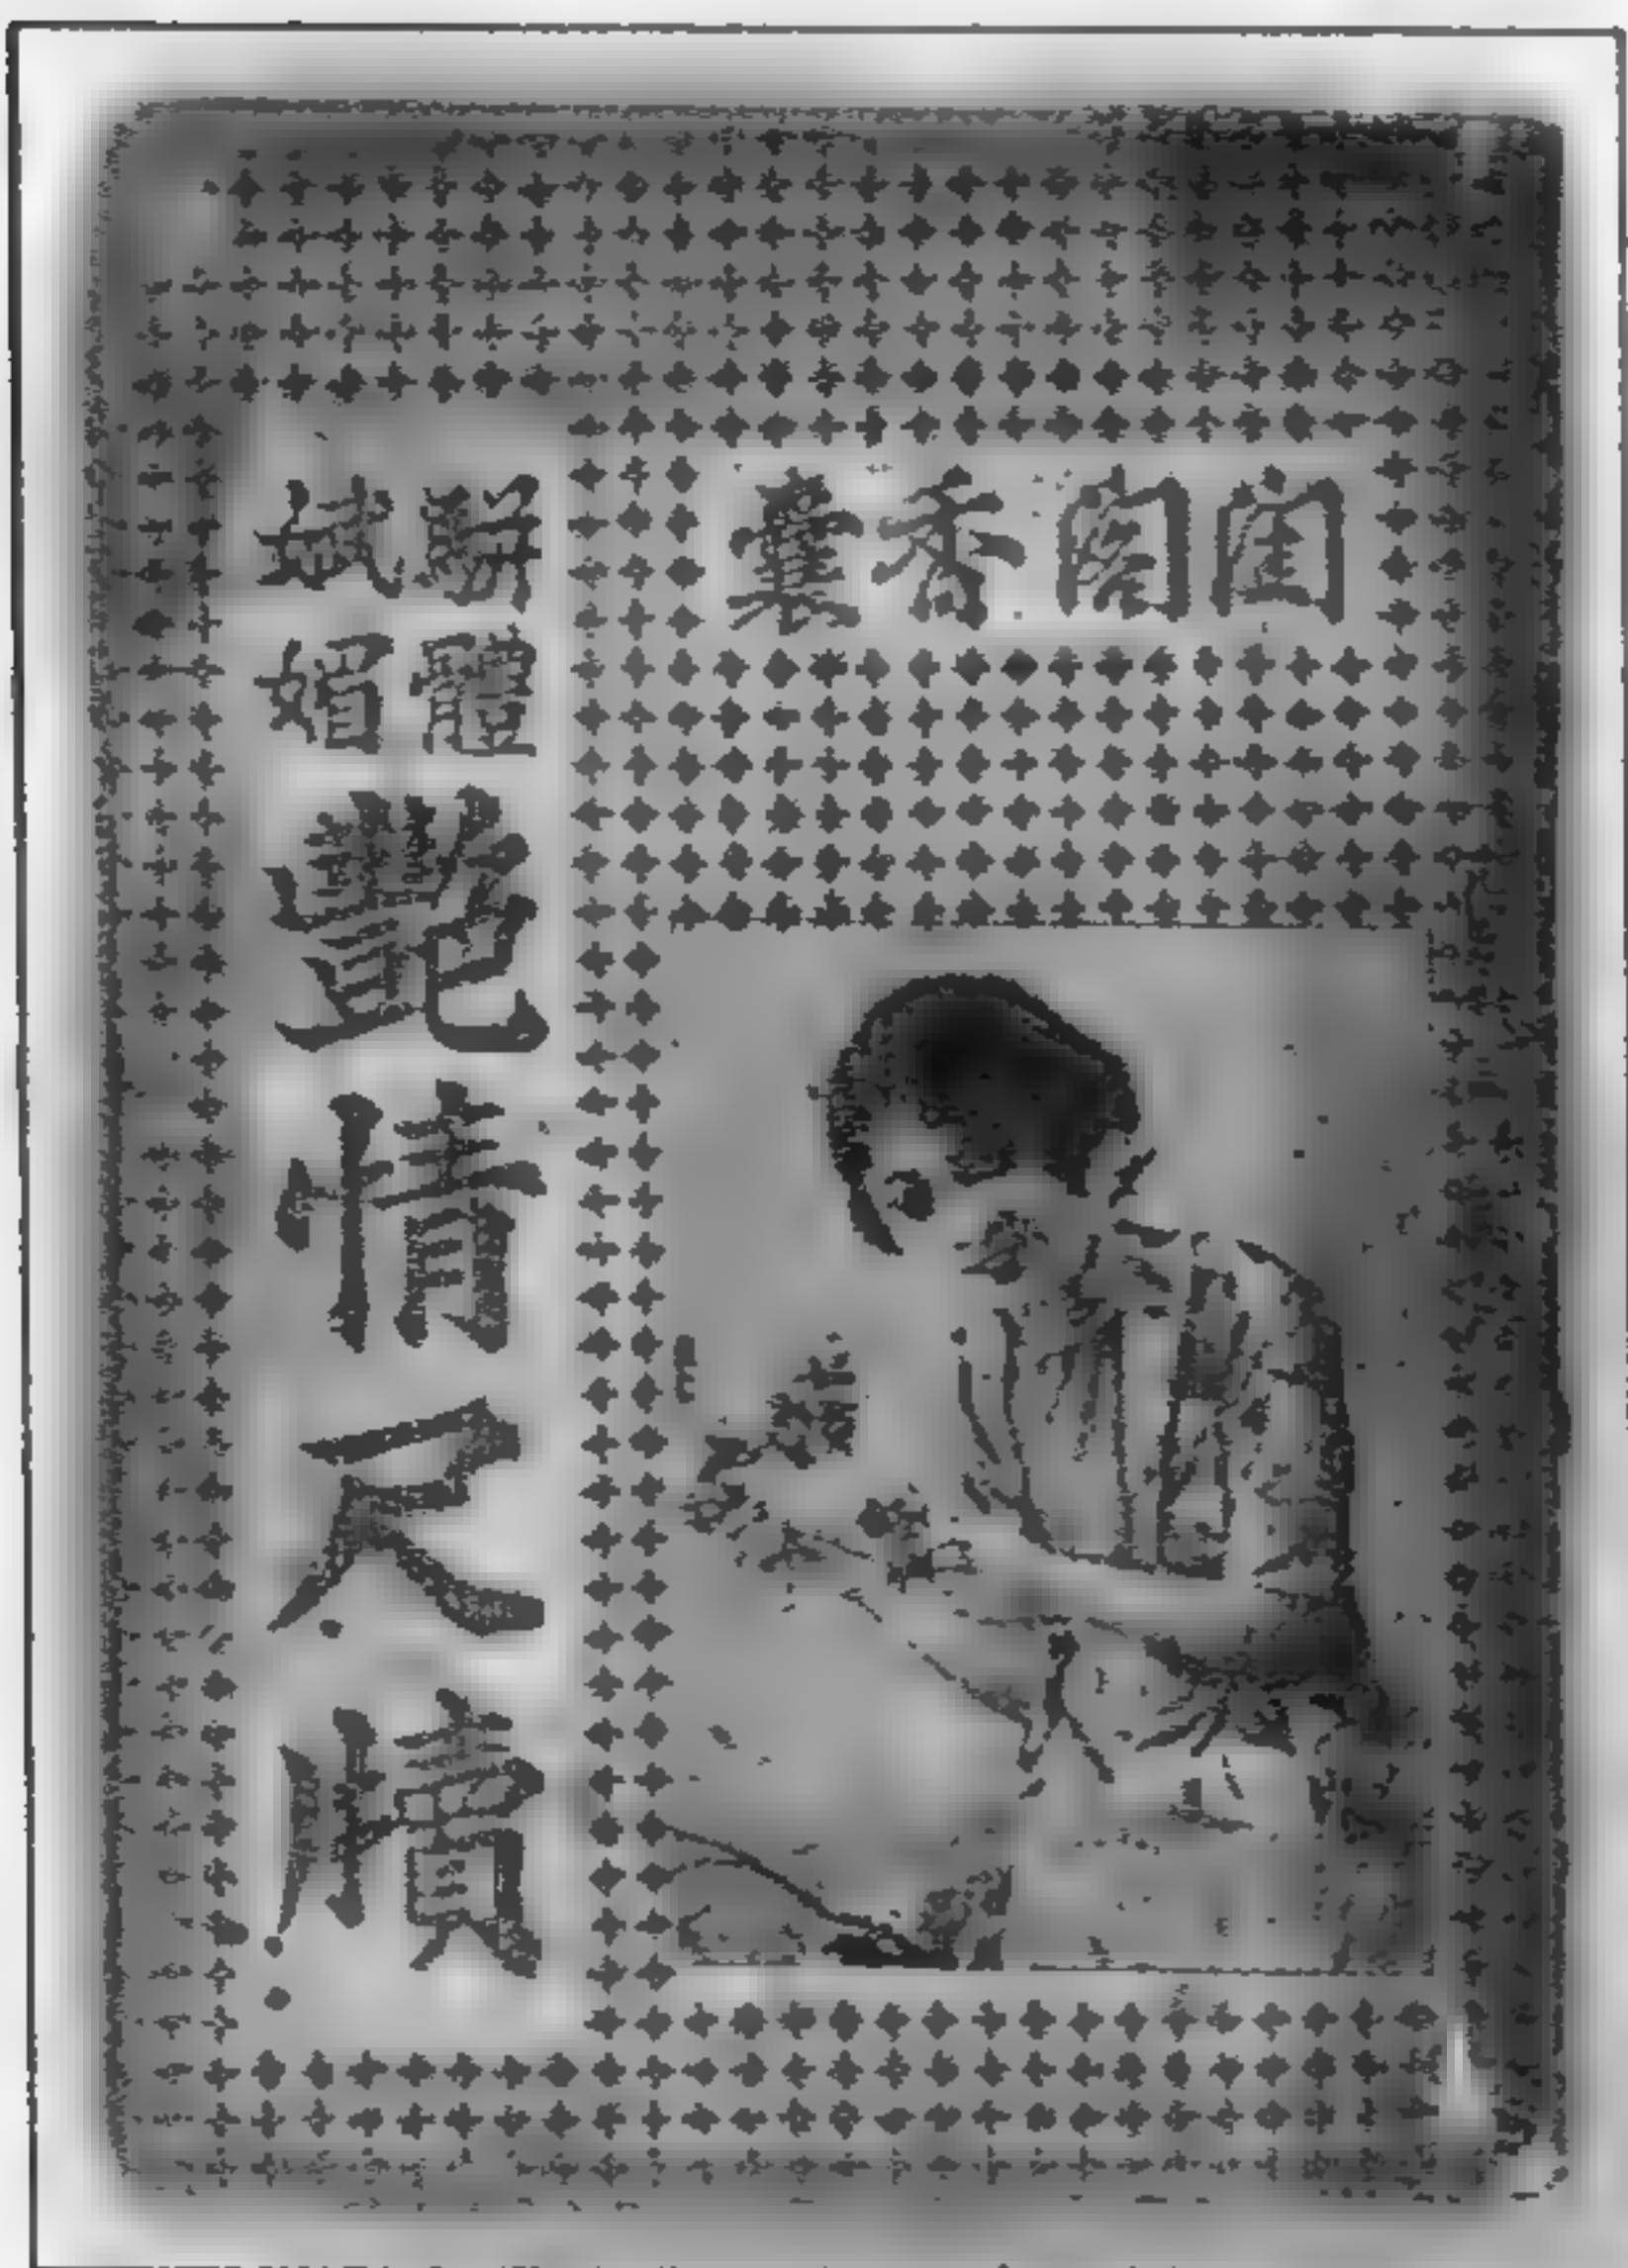 閨閣香囊
駢體
娬媚
艷情尺牘